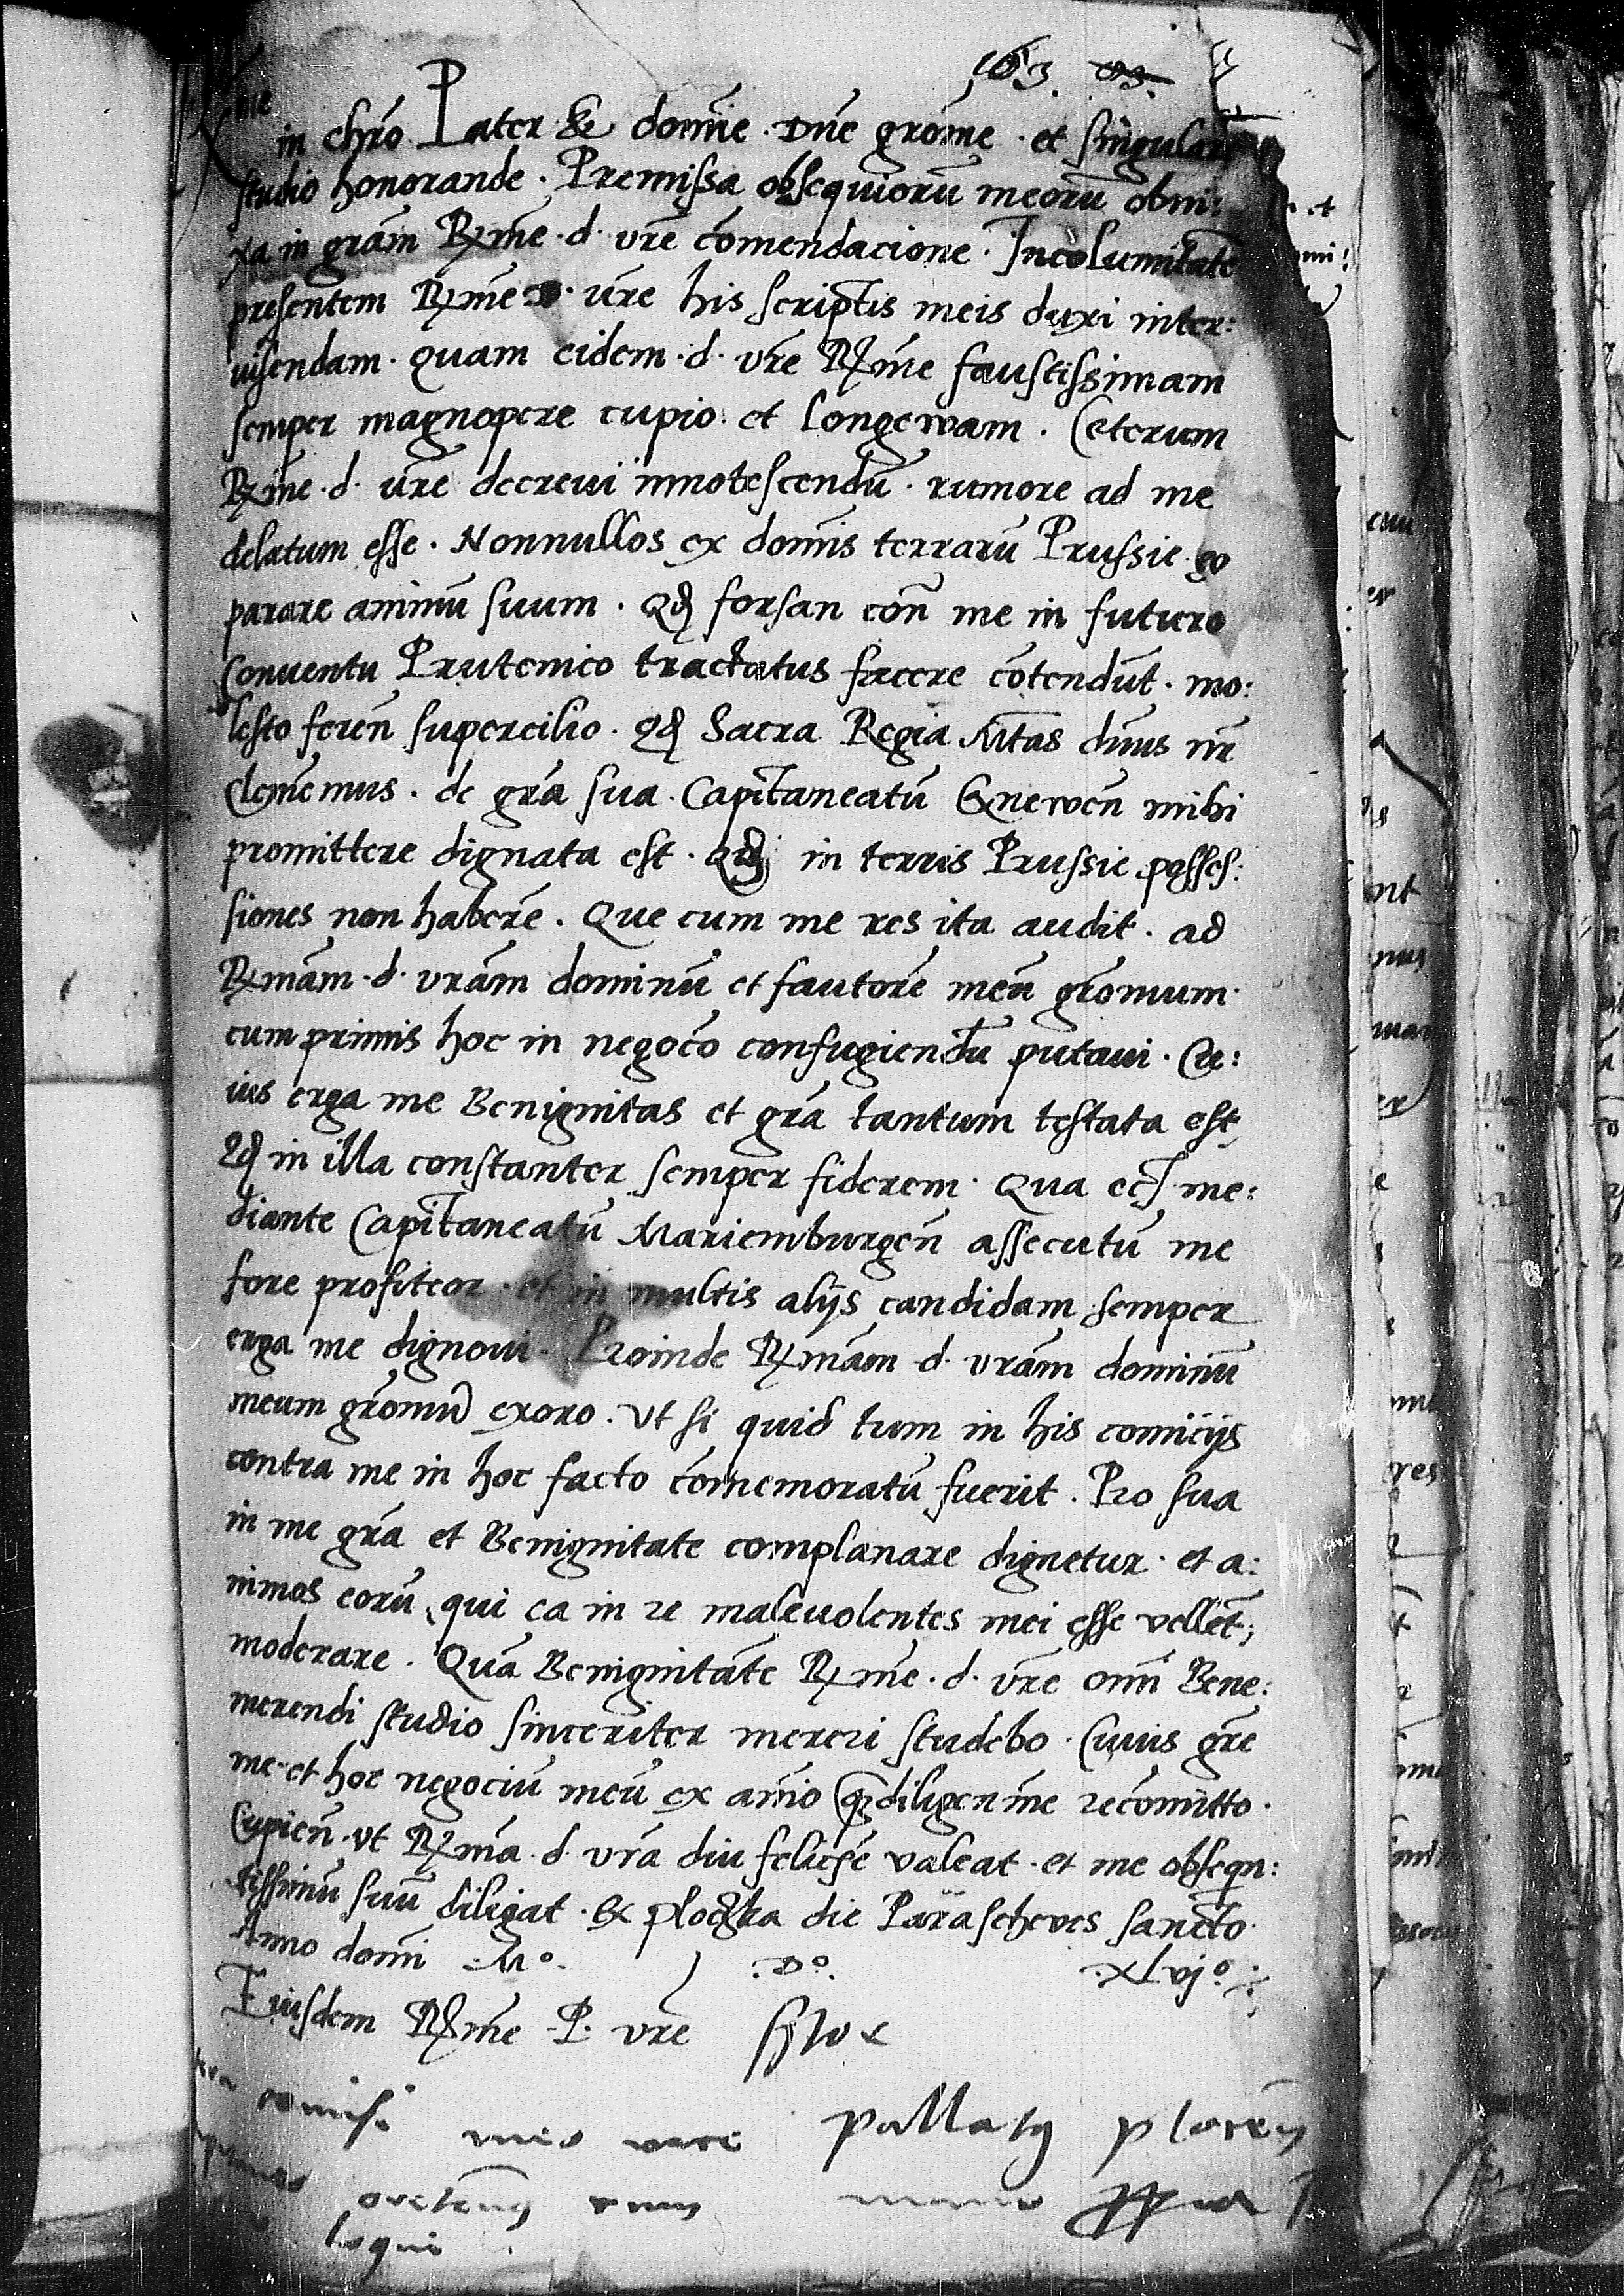 103. 83.
in chro Pater & domine Dne grome et singulari
studio honorande. Premissa obsequiorum meorum obni:
xa in gram Rme d. vre comendacione. Incolumitate
presentem Rme D. vre his scriptis meis duxi inter:
uisendam. quam eidem d. vre Rme faustissimam
semper magnopere cupio et longewam. Ceterum
Rme d. vre decrewi innotescendu. rumore ad me
delatum esse. Nonnullos ex domis terraru Prussie
parare animu suum. Qd forsan con me in futuro
Conuentu Prutenico tractatus facere cotendut. mo:
lesto feren supercilio. Qd Sacra Regia Mtas dnus nr
Clemenmus. de gra sua. Capitaneatu Gnewen mihi
promittere dignata est. Qd in terris Prussie posses:
siones non habere. Que cum me res ita audit. ad
Rmam d. vram dominu et fautore meu gromum
cum primis hoc in negoco confugiendu putaui. Cu:
ius erga me Benignitas et gra tantum testata est
Qd in illa constanter semper fiderem. Qua eci me:
diante Capitaneatu Mariemburgen assecutu me
fore profiteor. et in multis alijs candidam semper
erga me dignoui. Proinde Rmam d. vram dominu
meum gromu exoro. Vt si quid tum in his comicijs
contra me in hoc facto comemoratu fuerit. Pro sua
in me gra et Benignitate complanare dignetur. et a:
nimos eoru, qui ea in re maleuolentes mei esse vellet,
moderare. Qua Benignitate Rme d. vre omi Bene:
merendi studio sinceriter mereri studebo. Cuius gre
me et hoc negociu meu ex amio q diligenme recomitto.
Cupien. vt Rma d. vra diu felicise valeat. et me obseqn:
tissimu suu diligat. Ex ploczka die Parascheues sancto.
Anno domi M°. D°. xlvj°.
Eiusdem Rme P. vre
comisi
pallaty ploceñ
manu